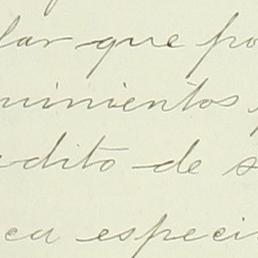 lar que po
uimientos
edito de s
ca especi